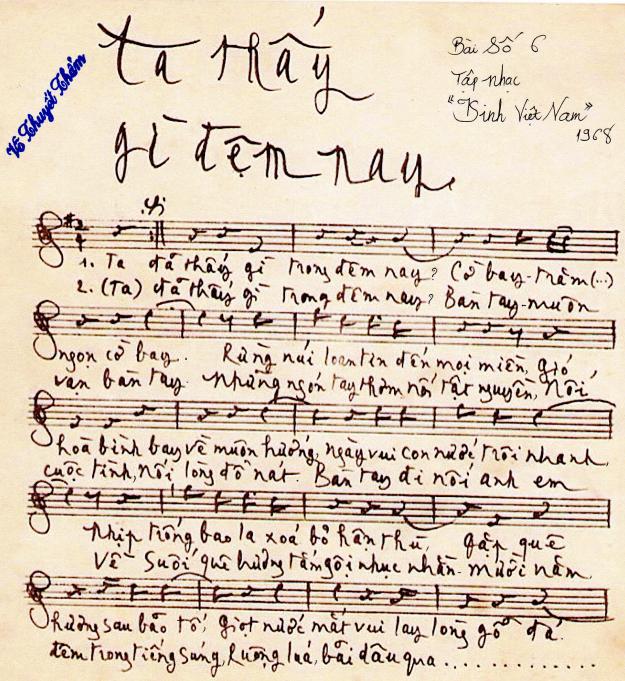 Ta thấy
gì đêm nay
Bài Số 6
Tập nhạc
"Kinh Việt Nam"
1968
Võ Thuyết Thám
1. Ta đã thấy gì trong đêm nay? Cờ bay trăm (..)
2. (Ta) đã thấy gì trong đêm nay? Bàn tay muôn
ngọn cờ bay. Rừng núi loan tin đến mọi miền, gió
vạn bàn tay. Những ngón tay thơm nối tật nguyền, Nối
hoà bình bay về muôn hướng, ngày vui con nước trôi nhanh,
cuộc tình, nối lòng đổ nát. Bàn tay đi nối anh em
Nhịp trống bao la xoá bỏ hận thù, gặp quê
Về suối quê hương tắm gội nhục nhằn. Mười năm
hương sau bão tố, giọt nước mắt vui lay lòng gỗ đá.
đêm trong tiếng súng, Ruộng lúa, bãi dâu qua . . . . . . . . . . . .